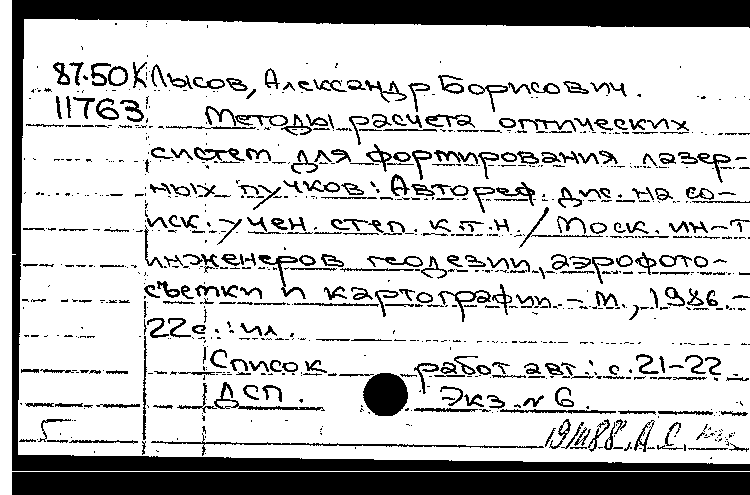 87-50К Лысов, Александр Борисович.
11763 Методы расчета оптических
систем для формирования лазер-
ных пучков: Автореф. дис. на со-
иск. учен. степ. к.т.н. / Моск. ин-т
инженеров геодезии, аэрофото-
съемки и картографии. - М., 1986. -
22 с.: ил.
Список работ авт.: с. 21-22.
ДСП. Экз. № 6.
Г